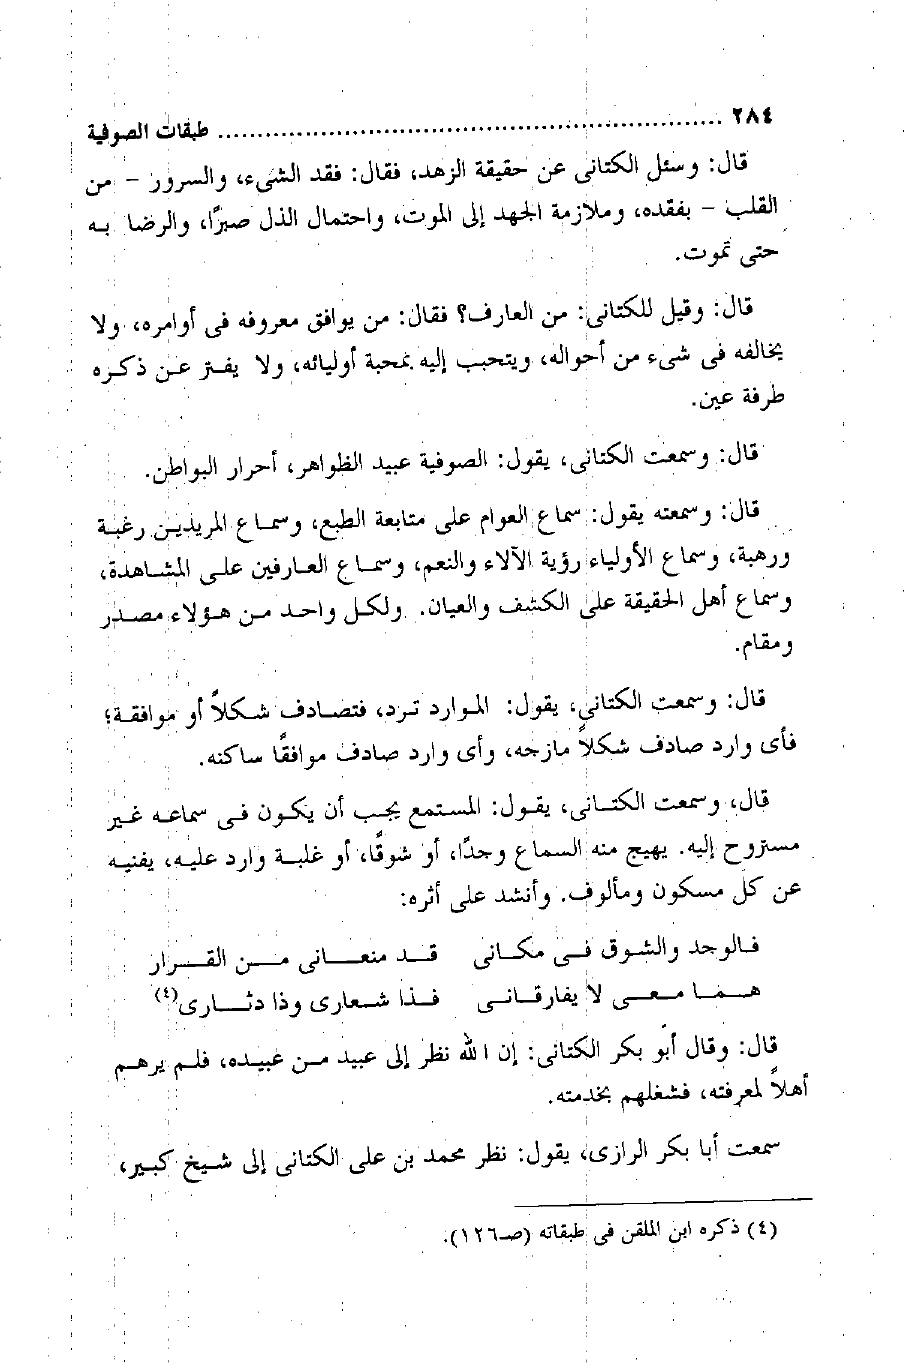 ٢٨٤ ................................................................ طبقات الصوفية
قال: وسئل الكتانى عن حقيقة الزهد، فقال: فقد الشىء، والسرور - من
القلب - بفقده، وملازمة الجهد إلى الموت، واحتمال الذل صبرًا، والرضا به
حتى تموت.
قال: وقيل للكتانى: من العارف؟ فقال: من يوافق معروفه فى أوامره، ولا
يخالفه فى شىء من أحواله، ويتحبب إليه بمحبة أوليائه، ولا يفتر عن ذكره
طرفة عين.
قال: وسمعت الكتانى، يقول: الصوفية عبيد الظواهر، أحرار البواطن.
قال: وسمعته يقول: سماع العوام على متابعة الطبع، وسماع المريدين رغبة
ورهبة، وسماع الأولياء رؤية الآلاء والنعم، وسماع العارفين على المشاهدة،
وسماع أهل الحقيقة على الكشف والعيان. ولكل واحد من هؤلاء مصدر
ومقام.
قال: وسمعت الكتانى، يقول: الموارد ترد، فتصادف شكلاً أو موافقة؛
فأى وارد صادف شكلاً مازجه، وأى وارد صادف موافقًا ساكنه.
قال، وسمعت الكتانى، يقول: المستمع يجب أن يكون فى سماعه غير
مستروح إليه. يهيج منه السماع وجدًا، أو شوقًا، أو غلبة وارد عليه، يفنيه
عن كل مسكون ومألوف. وأنشد على أثره:
فالوجد والشوق فى مكانى قد منعانى من القرار
هما معى لا يفارقانى فذا شعارى وذا دثارى(٤)
قال: وقال أبو بكر الكتانى: إن الله نظر إلى عبيد من عبيده، فلم يرهم
أهلاً لمعرفته، فشغلهم بخدمته.
سمعت أبا بكر الرازى، يقول: نظر محمد بن على الكتانى إلى شيخ كبير،
(٤) ذكره ابن الملقن فى طبقاته (صـ١٢٦).